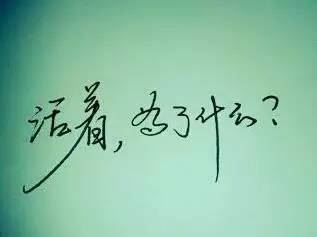 活着,为了什么?